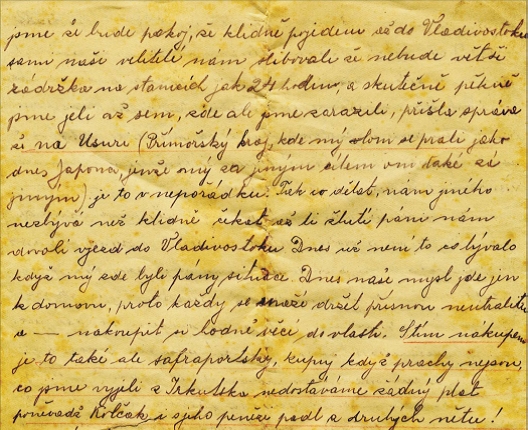 jsme že bude pokoj, že klidně pojedem až do Vladivostoku
sami naši velitelé nám slibovali že nebude větší
zádržka na stanicích jak 24 hodin, a skutečně pěkně
jsme jeli až sem, zde ale jsme zarazili, přišla zpráva
že na Usuri (Přímořský kraj, kde my vloni se prali jako
dnes Japona, jenže my za jiným cílem oni také za
jiným) je to v nepořádku. Tak co dělat, nám jiného
nezbývá než klidně čekat až li žlutí páni nám
dovolí vjezd do Vladivostoku Dnes už není to co bývalo
když my zde byli pány situace Dnes naše mysl jde jen
k domovu, proto každý se snaží držet přísnou neutralitu
a — nakoupit si hodně věcí do vlasti. S tím nákupem
je to také ale safraportsky, kupuj když prachy nejsou,
co jsme vyjeli z Irkutska nedostáváme žádný plat
poněvadž Kolčak i s jeho peněži padl a druhých nětu!